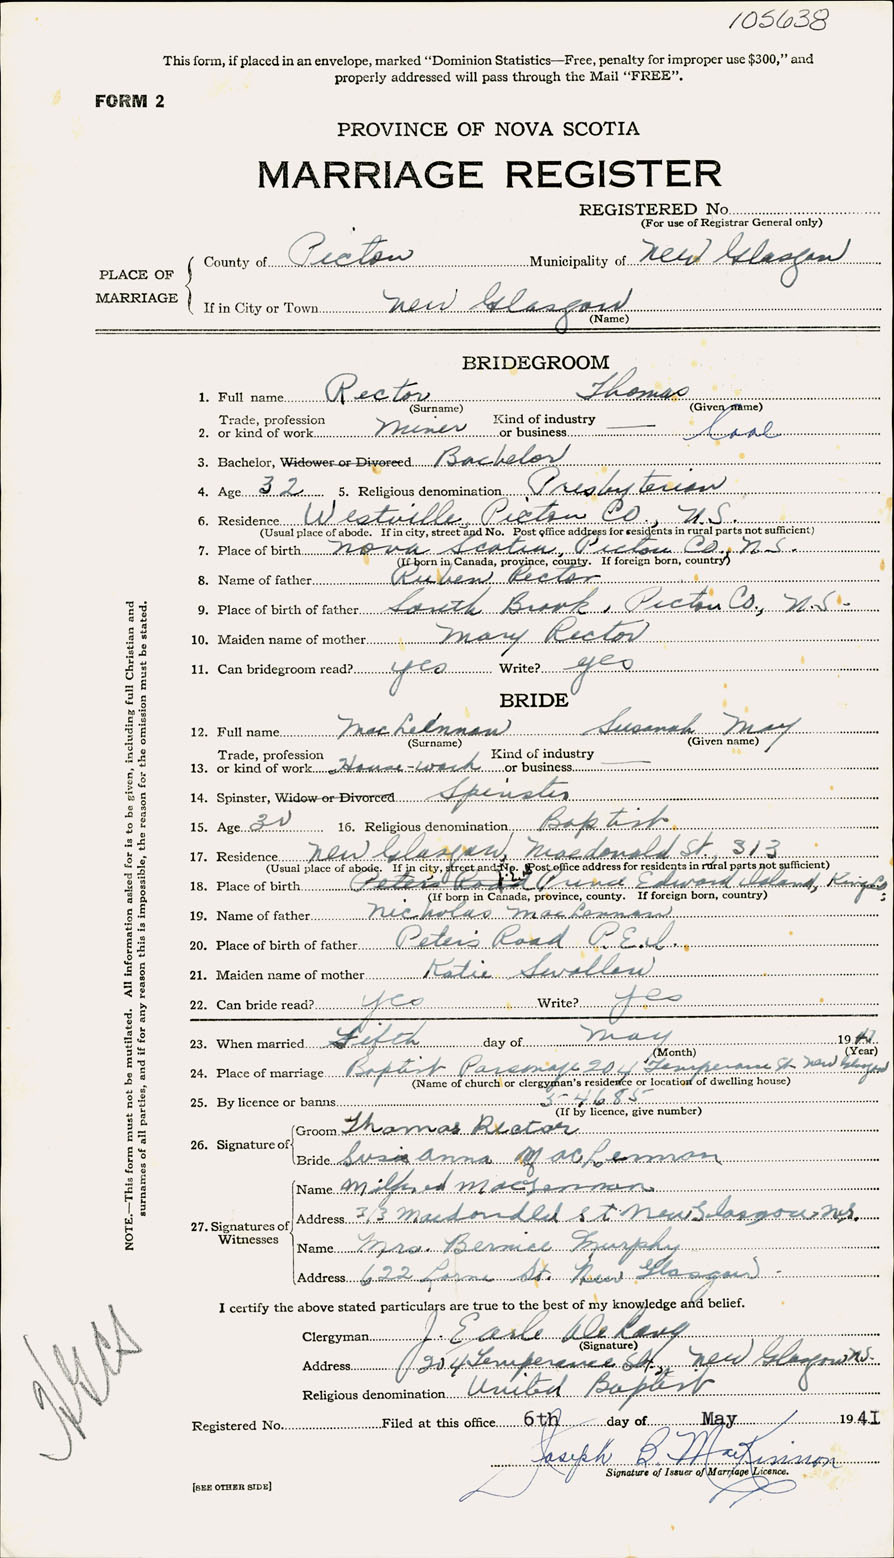 105638
This form, if placed in an envelope, marked "Dominion Statistics—Free, penalty for improper use $300," and
properly addressed will pass through the Mail "FREE".
FORM 2
PROVINCE OF NOVA SCOTIA
MARRIAGE REGISTER
REGISTERED No.
(For use of Registrar General only)
PLACE OF MARRIAGE
County of Pictou Municipality of New Glasgow
If in City or Town New Glasgow
(Name)
BRIDEGROOM
1. Full name Rector Thomas
(Surname) (Given name)
2. Trade, profession or kind of work Miner Kind of industry or business — Coal
3. Bachelor, Widower or Divorced Bachelor
4. Age 32 5. Religious denomination Presbyterian
6. Residence Westville, Pictou Co., N.S.
(Usual place of abode. If in city, street and No. Post office address for residents in rural parts not sufficient)
7. Place of birth Nova Scotia, Pictou Co., N.S.
(If born in Canada, province, county. If foreign born, country)
8. Name of father Ruben Rector
9. Place of birth of father South Brook, Pictou Co., N.S.
10. Maiden name of mother Mary Rector
11. Can bridegroom read? yes Write? yes
BRIDE
12. Full name MacLennan Susanah May
(Surname) (Given name)
13. Trade, profession or kind of work House-work Kind of industry or business —
14. Spinster, Widow or Divorced Spinster
15. Age 30 16. Religious denomination Baptist
17. Residence New Glasgow, Macdonald St., 313
(Usual place of abode. If in city, street and No. Post office address for residents in rural parts not sufficient)
18. Place of birth Peters Road Prince Edward Island, Kings Co
(If born in Canada, province, county. If foreign born, country)
19. Name of father Nicholas MacLennan
20. Place of birth of father Peters Road P.E.I.
21. Maiden name of mother Katie Swallow
22. Can bride read? yes Write? yes
23. When married Fifth day of May 1941
(Month) (Year)
24. Place of marriage Baptist Parsonage 204 Temperance St New Glasgow
(Name of church or clergyman's residence or location of dwelling house)
25. By licence or banns 54685
(If by licence, give number)
26. Signature of
Groom Thomas Rector
Bride Susie Anna MacLennan
27. Signatures of Witnesses
Name Milfred MacLennan
Address 313 Macdondld st New Glasgow N.S.
Name Mrs. Bernice Murphy
Address 622 Lorne St. New Glasgow
I certify the above stated particulars are true to the best of my knowledge and belief.
Clergyman J. Earle
(Signature)
Address 204 Temperance St., New Glasgow N.S.
Religious denomination United Baptist
Registered No. Filed at this office 6th day of May 1941
Joseph B. MacKinnon
Signature of Issuer of Marriage Licence.
[SEE OTHER SIDE]
NOTE.—This form must not be mutilated. All information asked for is to be given, including full Christian and
surnames of all parties, and if for any reason this is impossible, the reason for the omission must be stated.